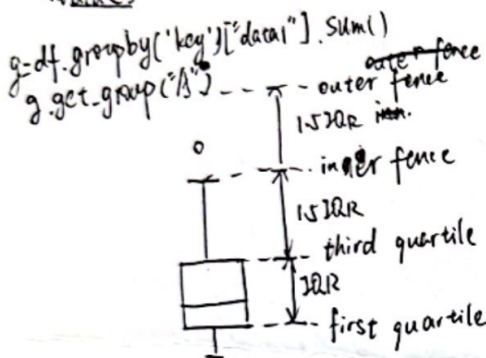 g=df.groupby('key')["data1"].sum()
g.get_group("A")
outer fence
1.5IQR
inner fence
1.5IQR
third quartile
IQR
first quartile